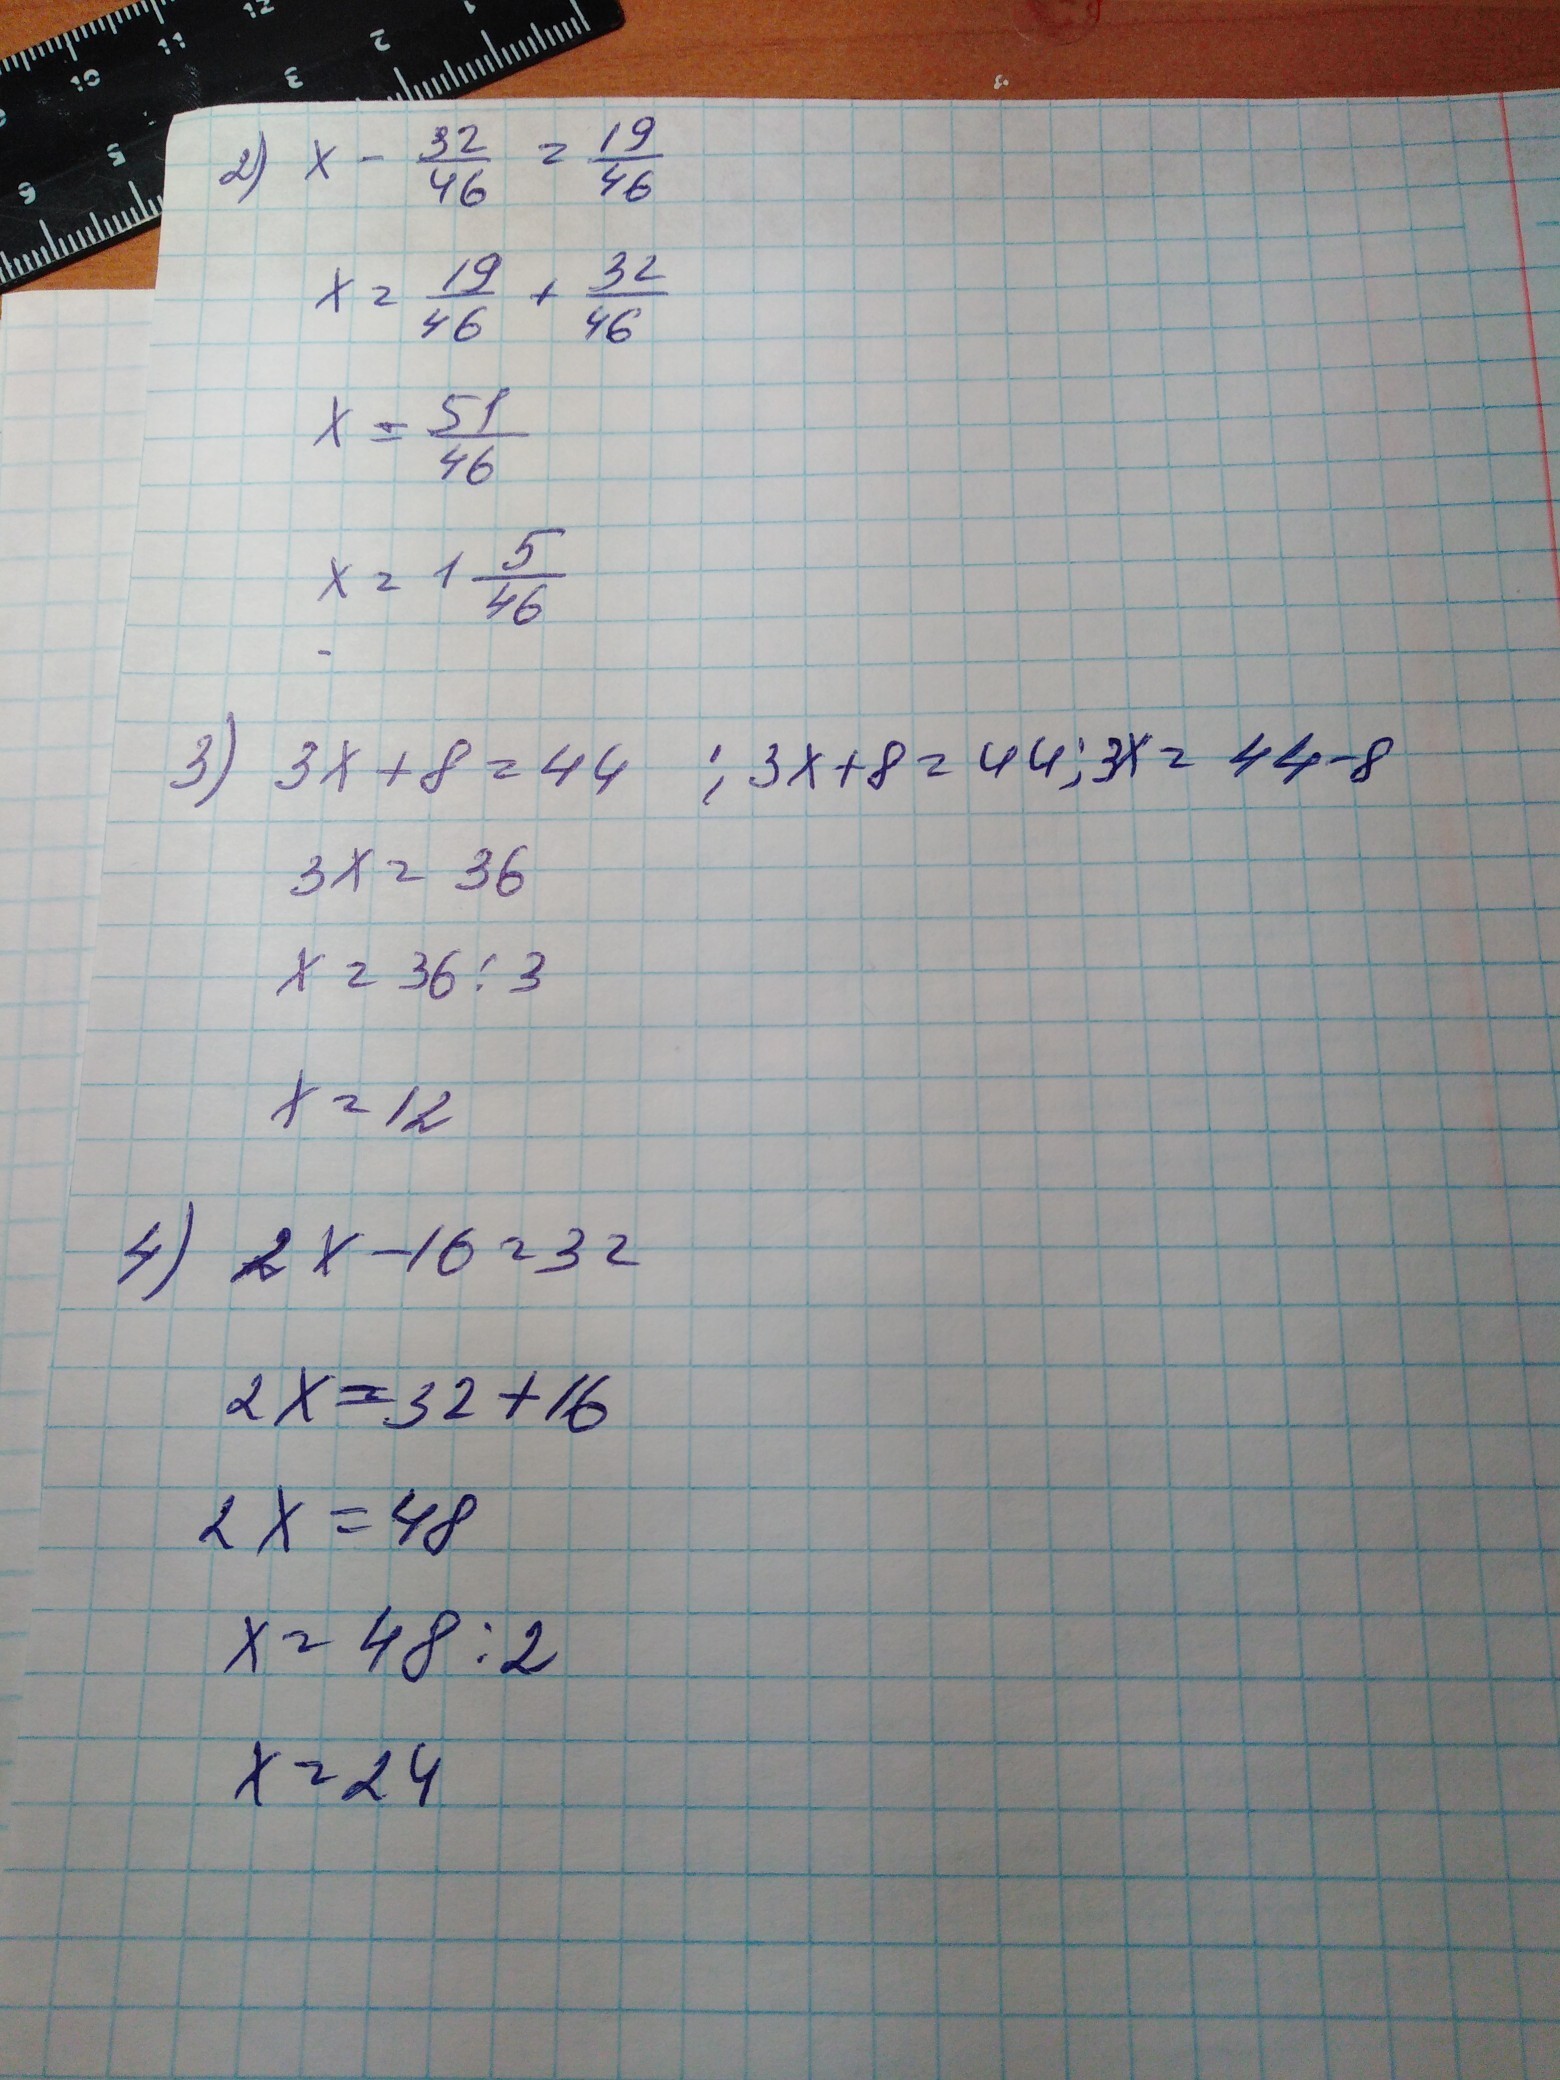 12 1
10 11 3 2
5
6
2) x - 32/46 = 19/46
x = 19/46 + 32/46
x = 51/46
x = 1 5/46
-
3) 3x+8=44 ; 3x+8=44; 3x= 44-8
3x= 36
x = 36:3
x = 12
4) 2x-16=32
2x=32+16
2x=48
x= 48:2
x=24